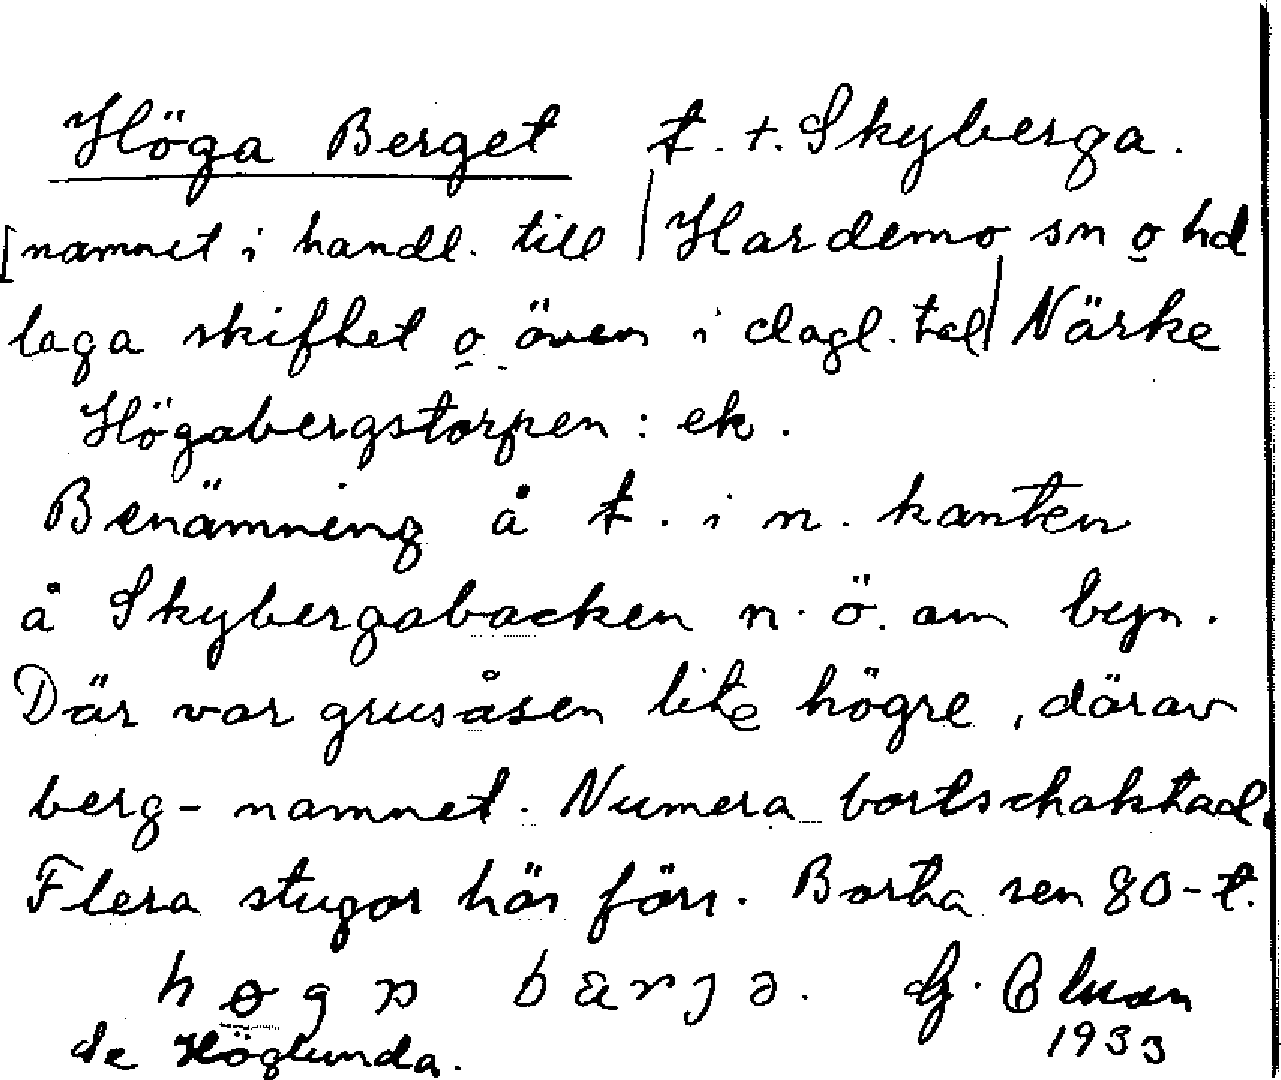 Höga Berget t. t. Skyberga.
[namnet i handl. till | Hardemo sn o hd
laga skiftet o även i dagl. tal | Närke
Högabergstorpen : ek.
Benämning å t. i n. kanten
å Skybergabacken n. ö. om byn.
Där var grusåsen lite högre, därav
berg-namnet. Numera bortschaktad.
Flera stugor här förr. Borta sen 80-t.
G.
1933
se Höglunda.